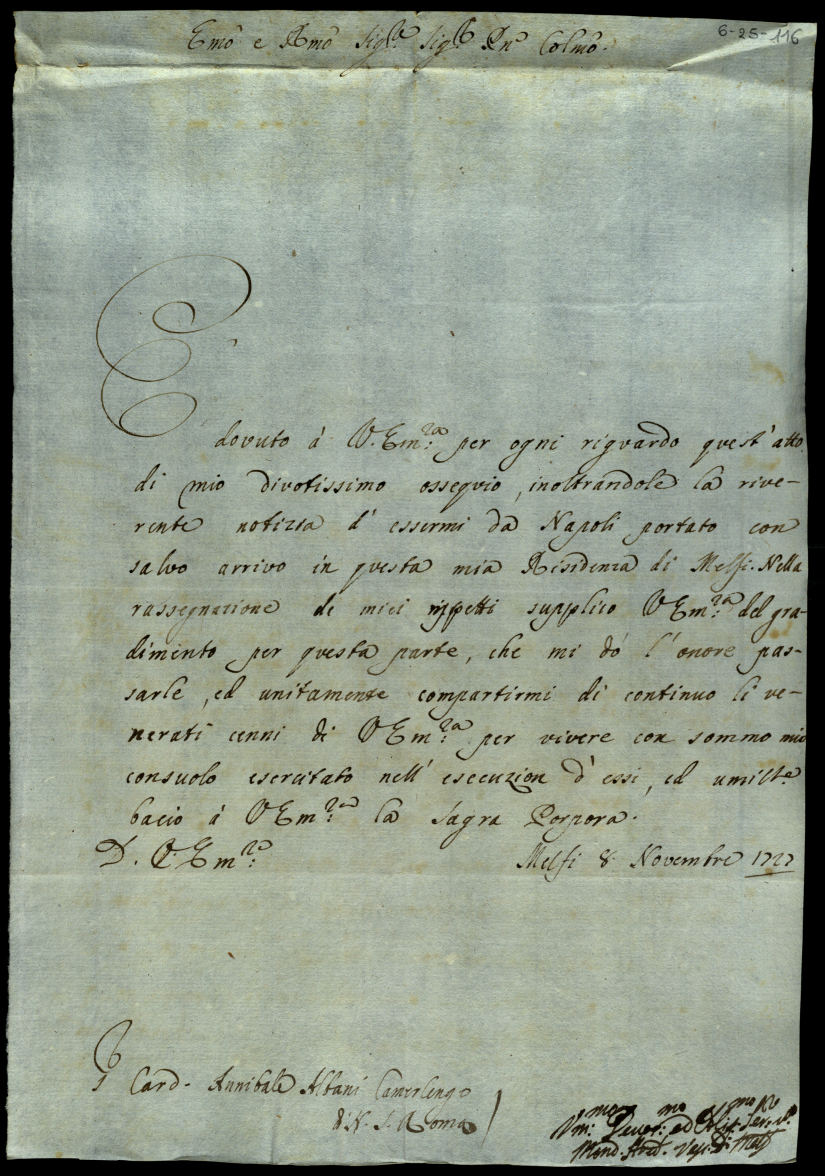 6-25-116
Emõ e Rmõ Sig.re Sig.r Pñ Colmõ.
È dovuto à V. Em:za per ogni riguardo quest'atto
di mio divotissimo ossequio, inoltrandole la rive-
rente notizia d'essermi da Napoli portato con
salvo arrivo in questa mia Residenza di Melfi. Nella
rassegnazione de miei rispetti supplico V Em:za del gra-
dimento per questa parte, che mi dò l'onore pas-
sarle, ed unitamente compartirmi di continuo li ve-
nerati cenni di V Em:za per vivere con sommo mio
consuolo esercitato nell'esecuzion d'essi, ed umilte
bacio à V Em:za la Sagra Porpora.
D. V. Em:za
Melfi 8. Novembre 1727
Card. Annibale Albani Camerlengo
di N. S. Roma
Vm:mo Devot:mo ed Obligmo Ser.re
Mond. Vesc. di Melfi